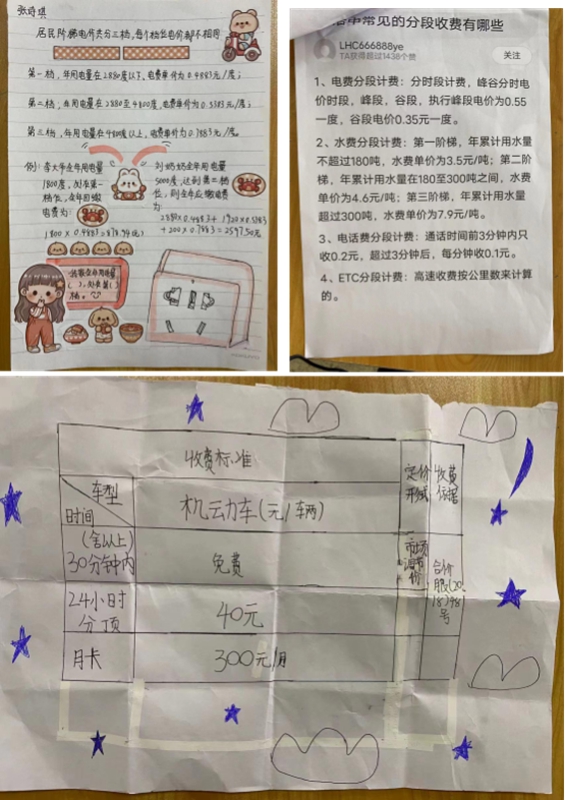 张诗琪
居民阶梯电价共分三档,每个档位电价都不相同
第一档,年用电量在2880度以下,电费单价为0.4883元/度;
第二档,年用电量在2880至4800度,电费单价为0.5383元/度;
第三档,年用电量在4800度以上,电费单价为0.7883元/度。
例:李大爷全年用电量
1800度,处在第一
档位,全年应缴
电费为:
1800×0.4883=878.94元)
刘奶奶全年用电量
5000度,达到第三档
位,则全年应缴电费
为:
2880×0.4883+1920×0.5383
+200×0.7883=2597.50元
我家全年用电量
( ),处在第( )
档。
中常见的分段收费有哪些
LHC666888ye
TA获得超过1438个赞
关注
1、电费分段计费:分时段计费,峰谷分时电
价时段,峰段,谷段,执行峰段电价为0.55
一度,谷段电价0.35元一度。
2、水费分段计费:第一阶梯,年累计用水量
不超过180吨,水费单价为3.5元/吨;第二阶
梯,年累计用水量在180至300吨之间,水费
单价为4.6元/吨;第三阶梯,年累计用水量
超过300吨,水费单价为7.9元/吨。
3、电话费分段计费:通话时间前3分钟内只
收0.2元,超过3分钟后,每分钟收0.1元。
4、ETC分段计费:高速收费按公里数来计算
的。
收费标准
定价
形式
收费
依据
车型
时间
机动车(元/车辆)
(含以上)
30分钟内
免费
市场
调节
价
合价
服(20
18)98
号
24小时
分顶
40元
月卡
300元/月